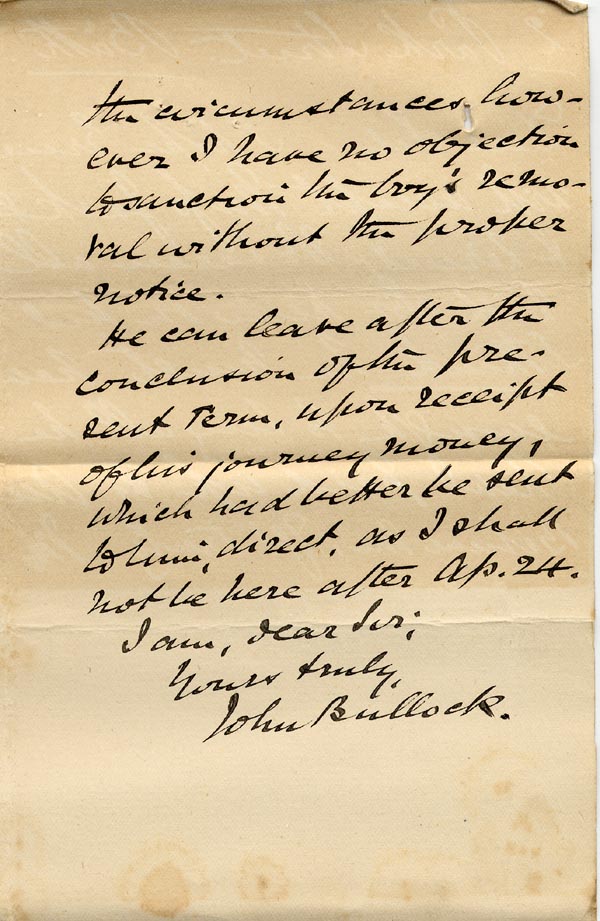 the circumstances, how-
ever I have no objection
to sanction the boy's remo-
val without the proper
notice.
He can leave after the
conclusion of the pre-
sent Term, upon receipt
of his journey money,
which had better be sent
to him, direct, as I shall
not be here after Ap. 24.
I am, dear Sir,
Yours truly,
John Bullock.